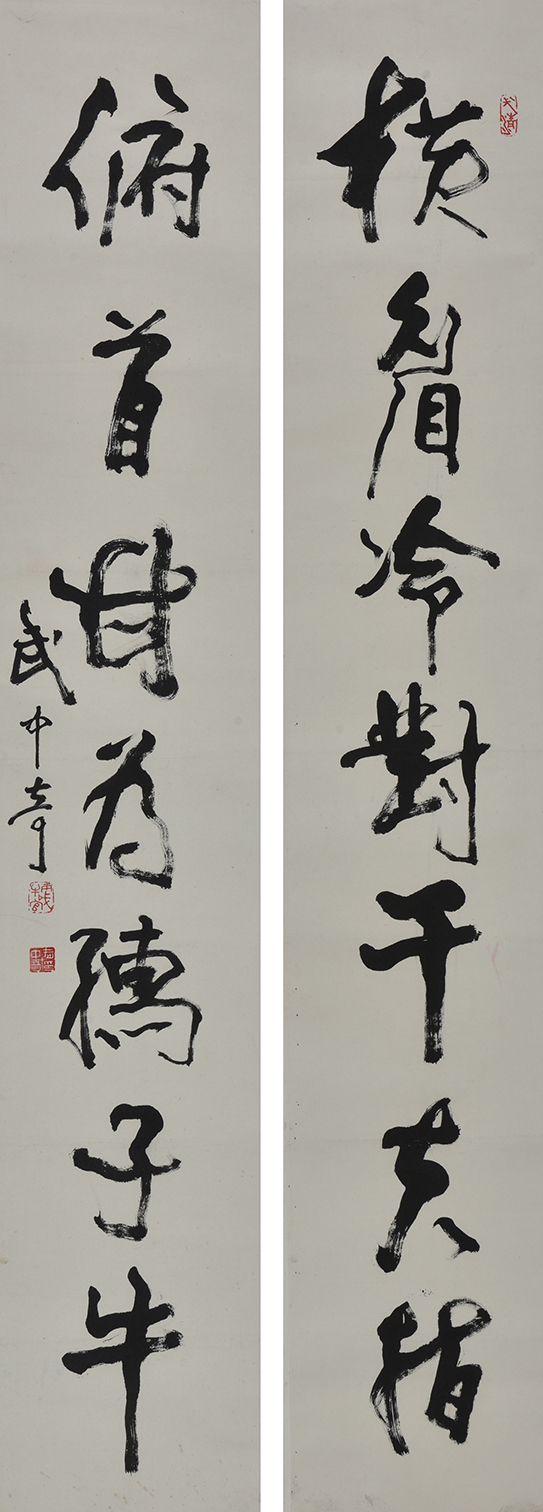 橫眉冷對千夫指
俯首甘為孺子牛
武中奇